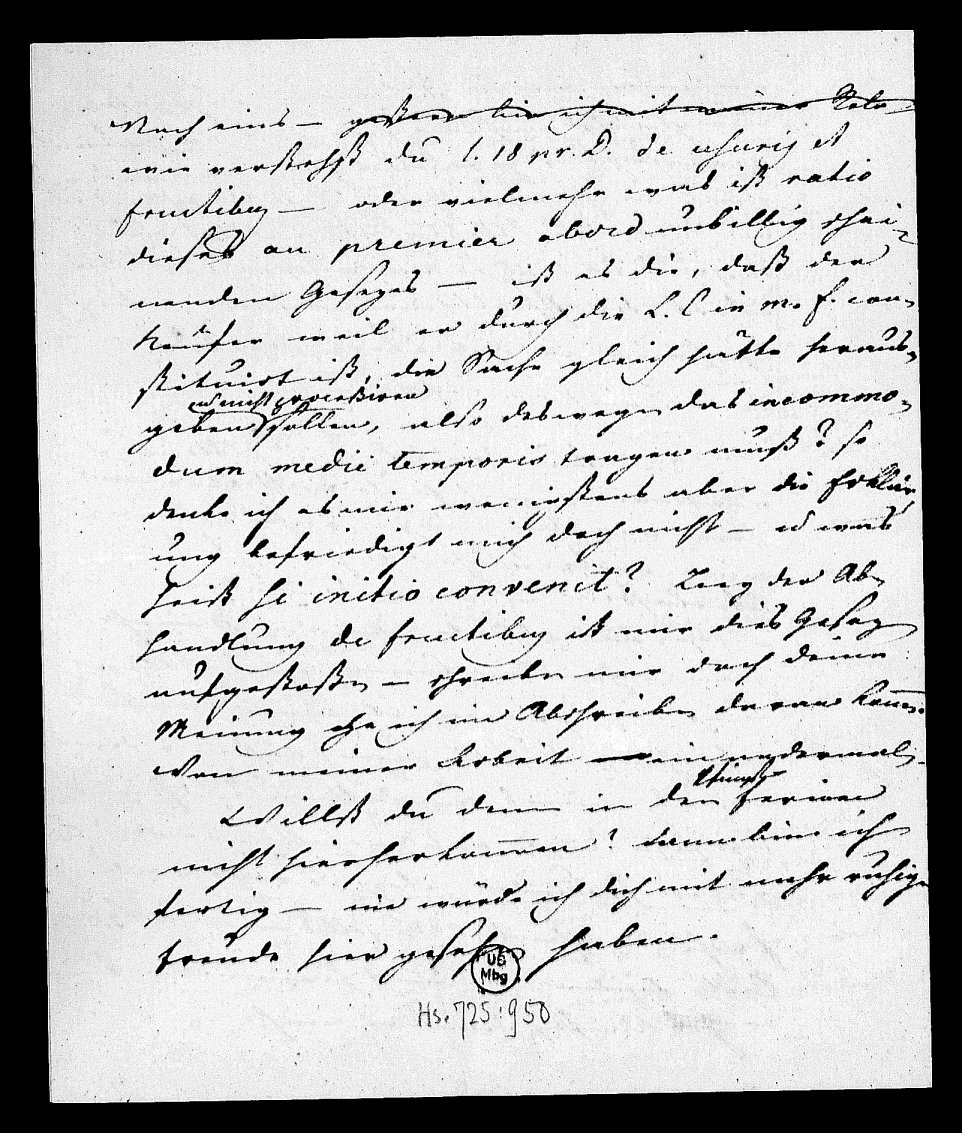 Noch eins – gestern bin ich mit meiner Rela-
wie verstehst du l. 18 pr. D. de usuris et
fructibus – oder vielmehr was ist ratio
dieses au premier abord unbillig schei-
nenden Gesezes – ist es die, daß der
Käufer weil er durch die L. C. in m. f. con-
stituirt ist, die Sache gleich hätte heraus-
u nicht processiren
geben sollen, also deswegen das incommo-
dum medii temporis tragen muß? so
denke ich es mir wenigstens aber die Erklär-
ung befriedigt mich doch nicht – u was
heist si initio convenit? Bey der Ab-
handlung de fructibus ist mir dies Gesez
aufgestoßen – schreibe mir doch deine
Meinung ehe ich im Abschreiben daran komme.
Von meiner Arbeit ein andermal.
Willst du denn in den Ferien
nicht hierherkommen? dann bin ich
fertig – nie würde ich dich mit mehr ruhiger
Freude hier gesehen haben.
UB
Mbg
Hs. 725:950